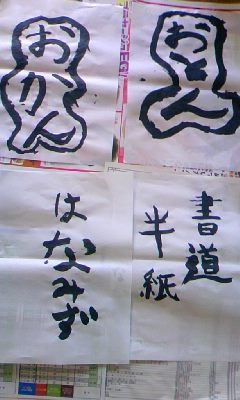 おとん
おかん
書道
半紙
はなみず